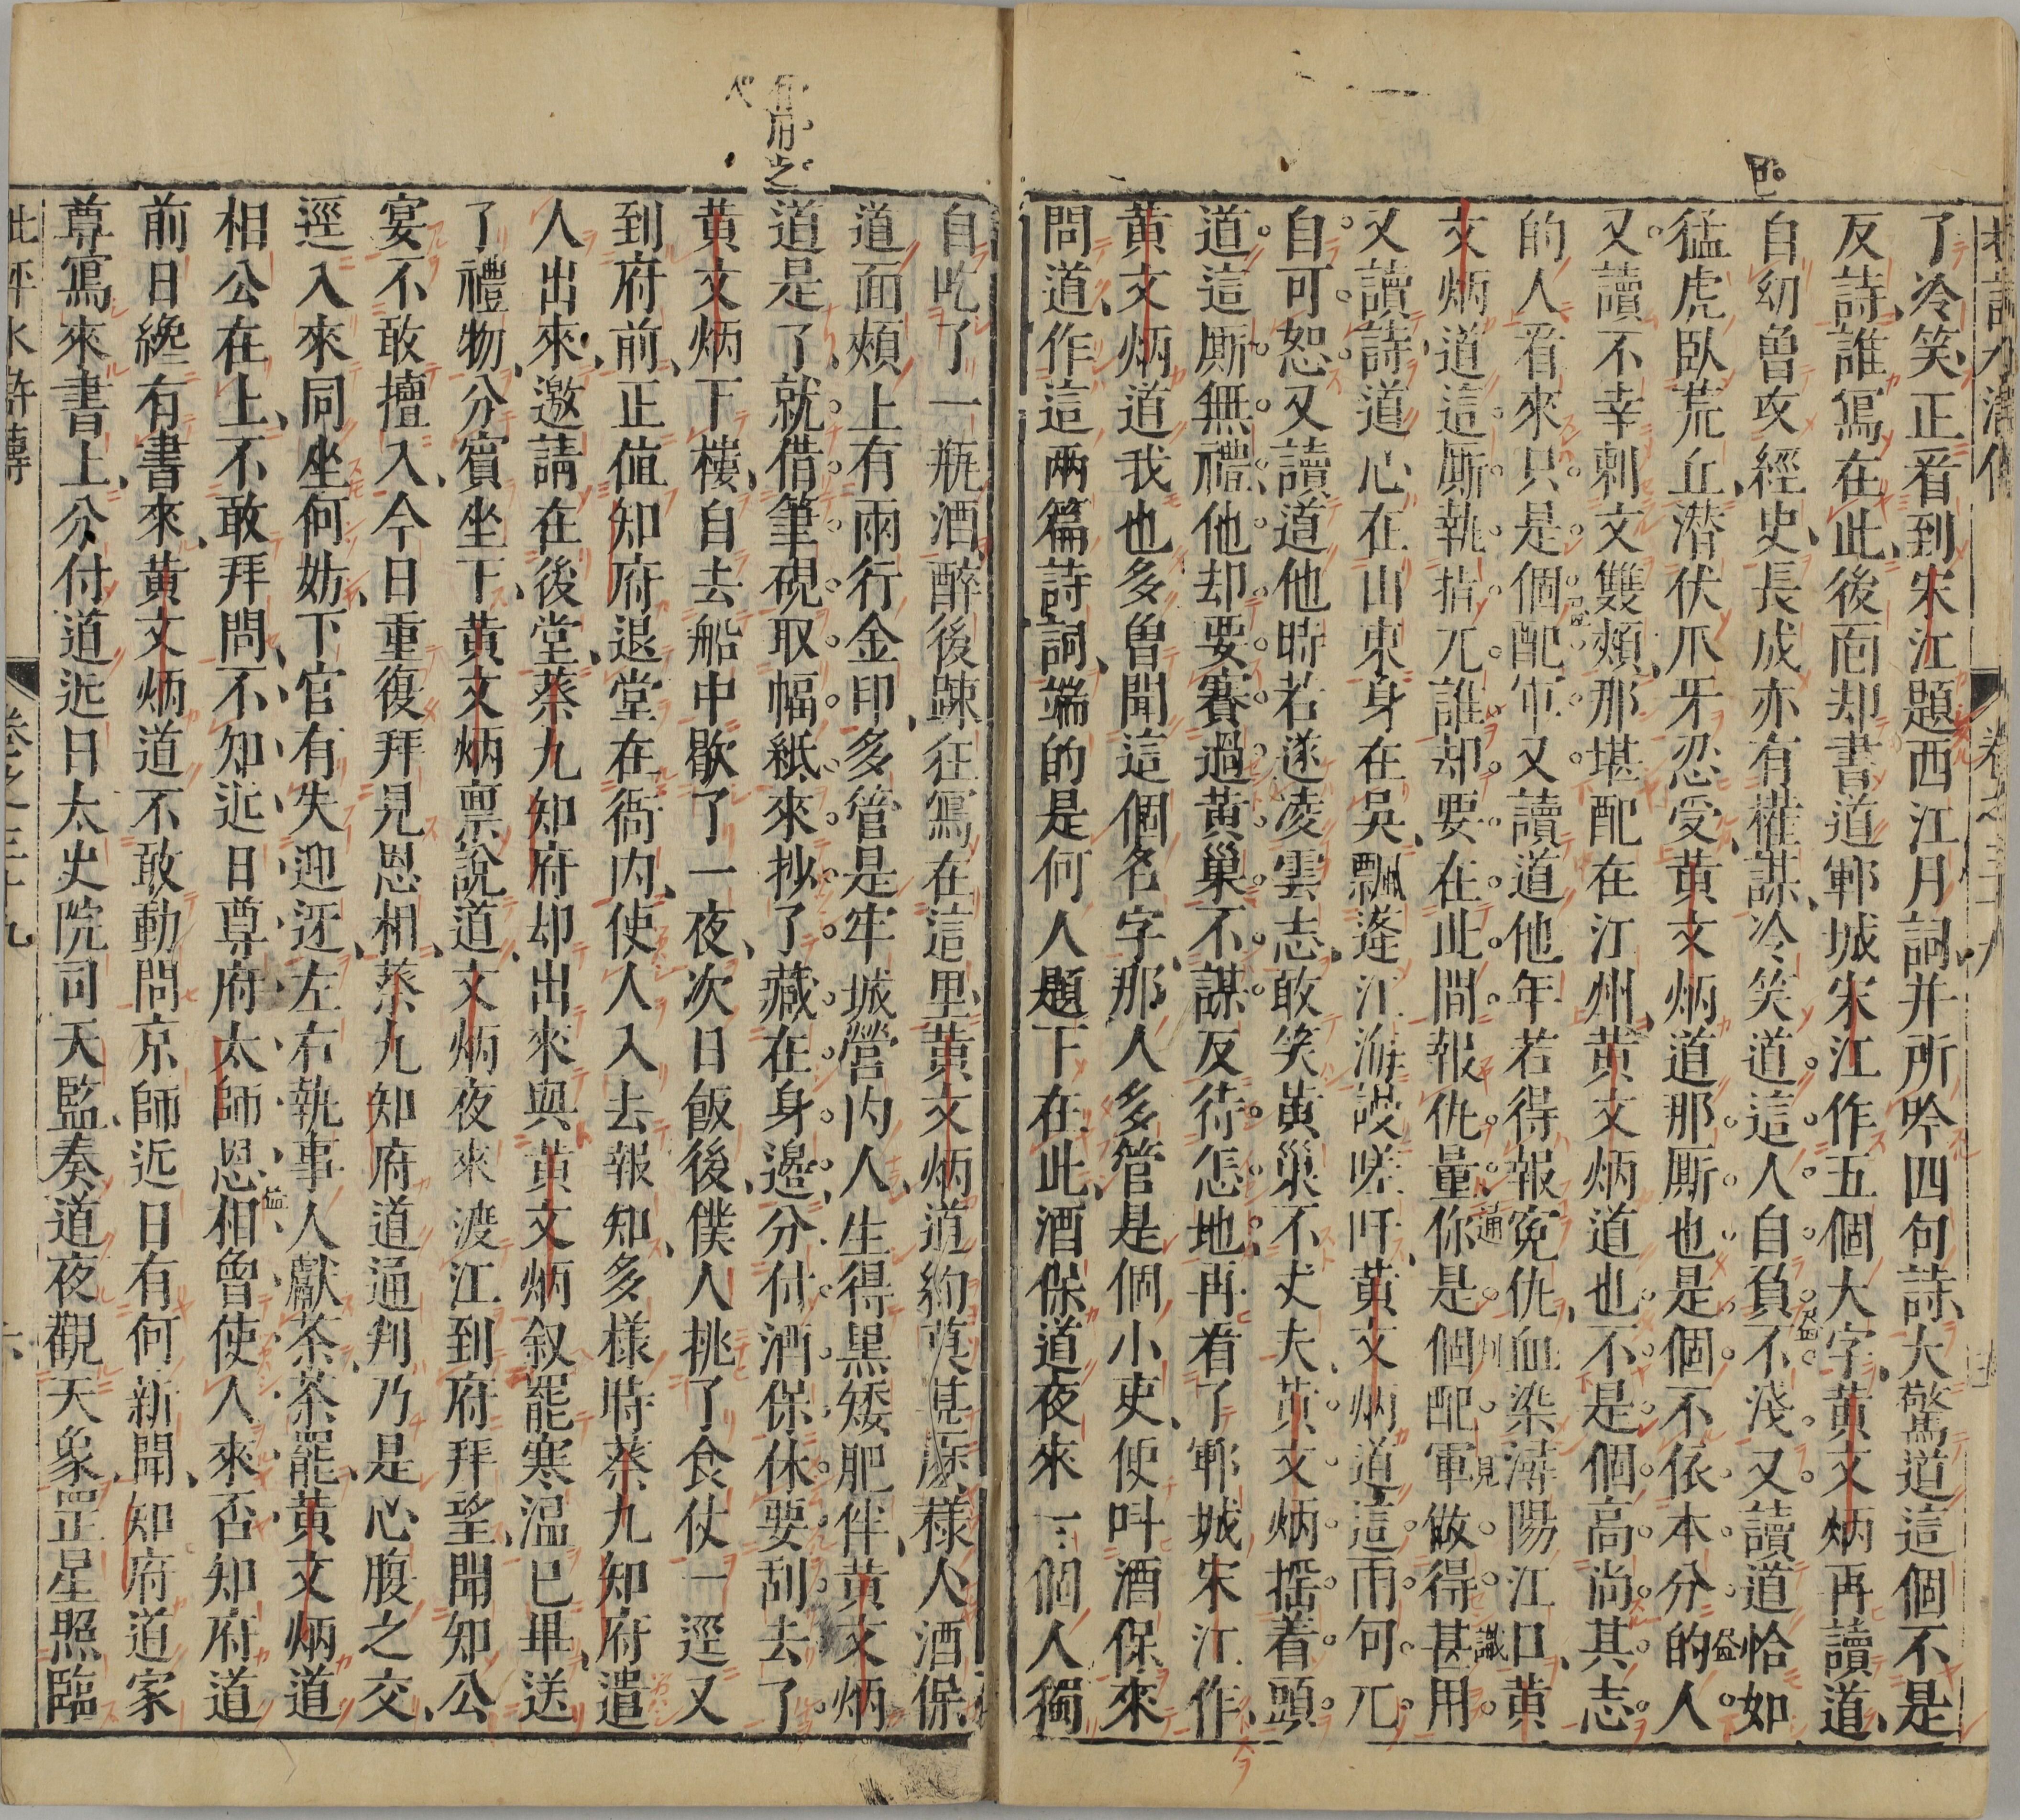 了冷笑正看到宋江題西江月詞并所吟四句詩大驚道這個不是
反詩誰寫在此後面却書道鄆城宋江作五個大字黃文炳再讀道
自幼曾攻經史長成亦有權謀冷笑道這人自負不淺又讀道恰如
猛虎臥荒丘潛伏爪牙忍受黃文炳道那厮也是個不依本分的人
又讀不幸刺文雙頰那堪配在江州黃文炳道也不是個高尚其志
的人看來只是個配軍又讀道他年若得報冤仇血染潯陽江口黃
文炳道這厮執指兀誰却要在此間報仇量你是個配軍做得甚用
又讀詩道心在山東身在吳飄蓬江海謾嗟吁黃文炳道這兩句兀
自可恕又讀道他時若遂凌雲志敢笑黃巢不丈夫黃文炳搖着頭
道這厮無禮他却要賽過黃巢不謀反待怎地再看了鄆城宋江作
黃文炳道我也多曾聞這個名字那人多管是個小吏便呌酒保來
問道作這兩篇詩詞端的是何人題下在此酒保道夜來一個人獨
自吃了一瓶酒醉後踈狂寫在這里黃文炳道約莫甚麽樣人酒保
道面頰上有兩行金印多管是牢城營內人生得黑矮肥胖黃文炳
道是了就借筆硯取幅紙來抄了藏在身邊分付酒保休要刮去了
黃文炳下樓自去船中歇了一夜次日飯後僕人挑了食仗一逕又
到府前正值知府退堂在衙內使人入去報知多樣時蔡九知府遣
人出來邀請在後堂蔡九知府却出來與黃文炳叙罷寒温已畢送
了禮物分賓坐下黃文炳禀說道文炳夜來渡江到府拜望聞知公
宴不敢擅入今日重復拜見恩相蔡九知府道通判乃是心腹之交
逕入來同坐何妨下官有失迎迓左右執事人獻茶茶罷黃文炳道
相公在上不敢拜問不知近日尊府太師恩相曾使人來否知府道
前日纔有書來黃文炳道不敢動問京師近日有何新聞知府道家
尊寫來書上分付道近日太史院司天監奏道夜觀天象罡星照臨